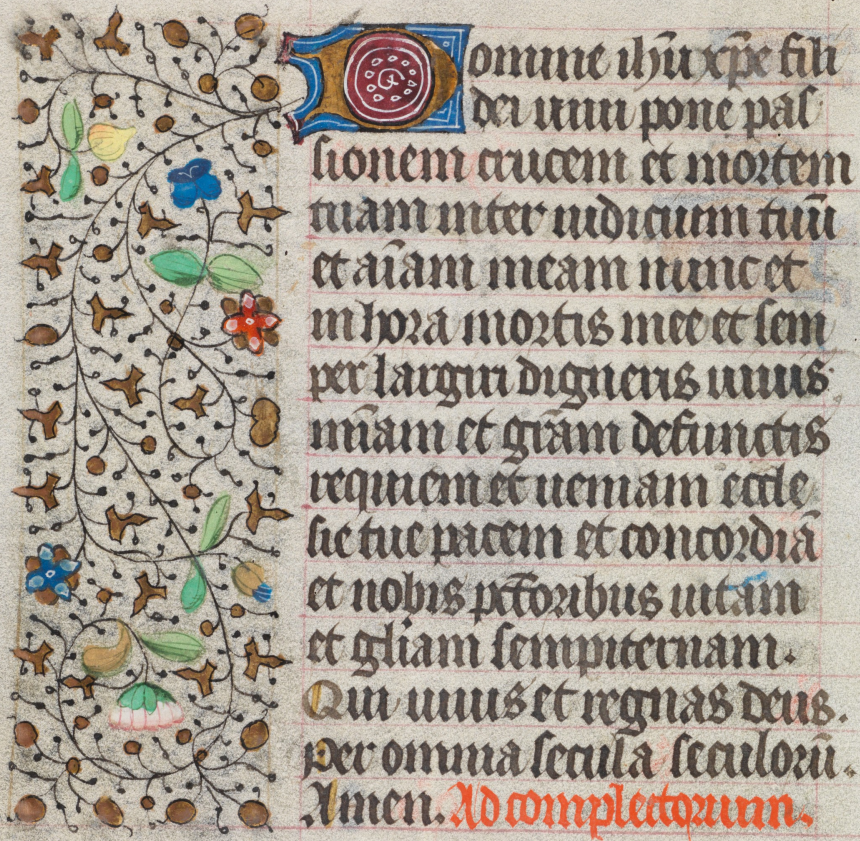 Domine ihu xpe fili
dei uiui pone pas
sionem crucem et mortem
tuam inter iudicium tuū
et aīam meam nunc et
in hora mortis mee et sem
per largiri digneris uiuis
mīam et grām defunctis
requiem et ueniam eccle
sie tue pacem et concordiā
et nobis pctoribus uitam
et gliam sempiternam.
Qui uiuis et regnas deus.
per omnia secula seculorū.
Amen. Ad complectorium.